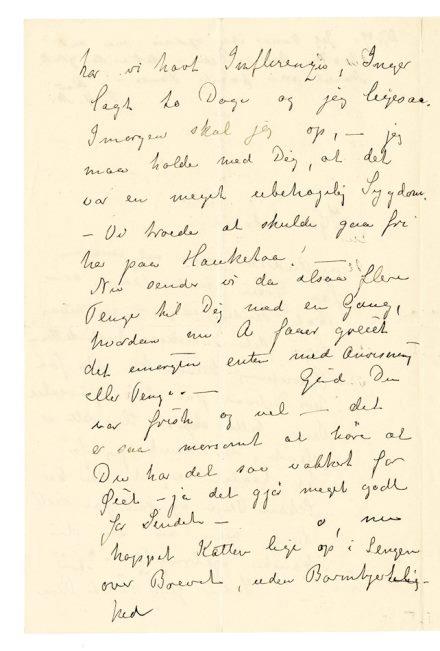 har vi havt Influenzio, Inger
lagt to Dage og jeg ligesaa.
Imorgen skal jeg op, — jeg
maa holde med Dig, at det
var en meget ubehagelig Sygdom.
— Vi troede at skulde gaa fri
her paa Hauketaa! —
Nu sender vi da altsaa flere
Penge til Dig med en Gang,
hvordan nu A faaer greiet
det imorgen enten med Anvisning
eller Penge. — Gid Du
var frisk og vel — det
er saa morsomt at höre at
Du har det saa vakkert for
Öiet — ja det gjör meget godt
for Sindet — o, nu
hoppet Katten lige op i Sengen
over Brevet, uden Barmhjertelig-
hed